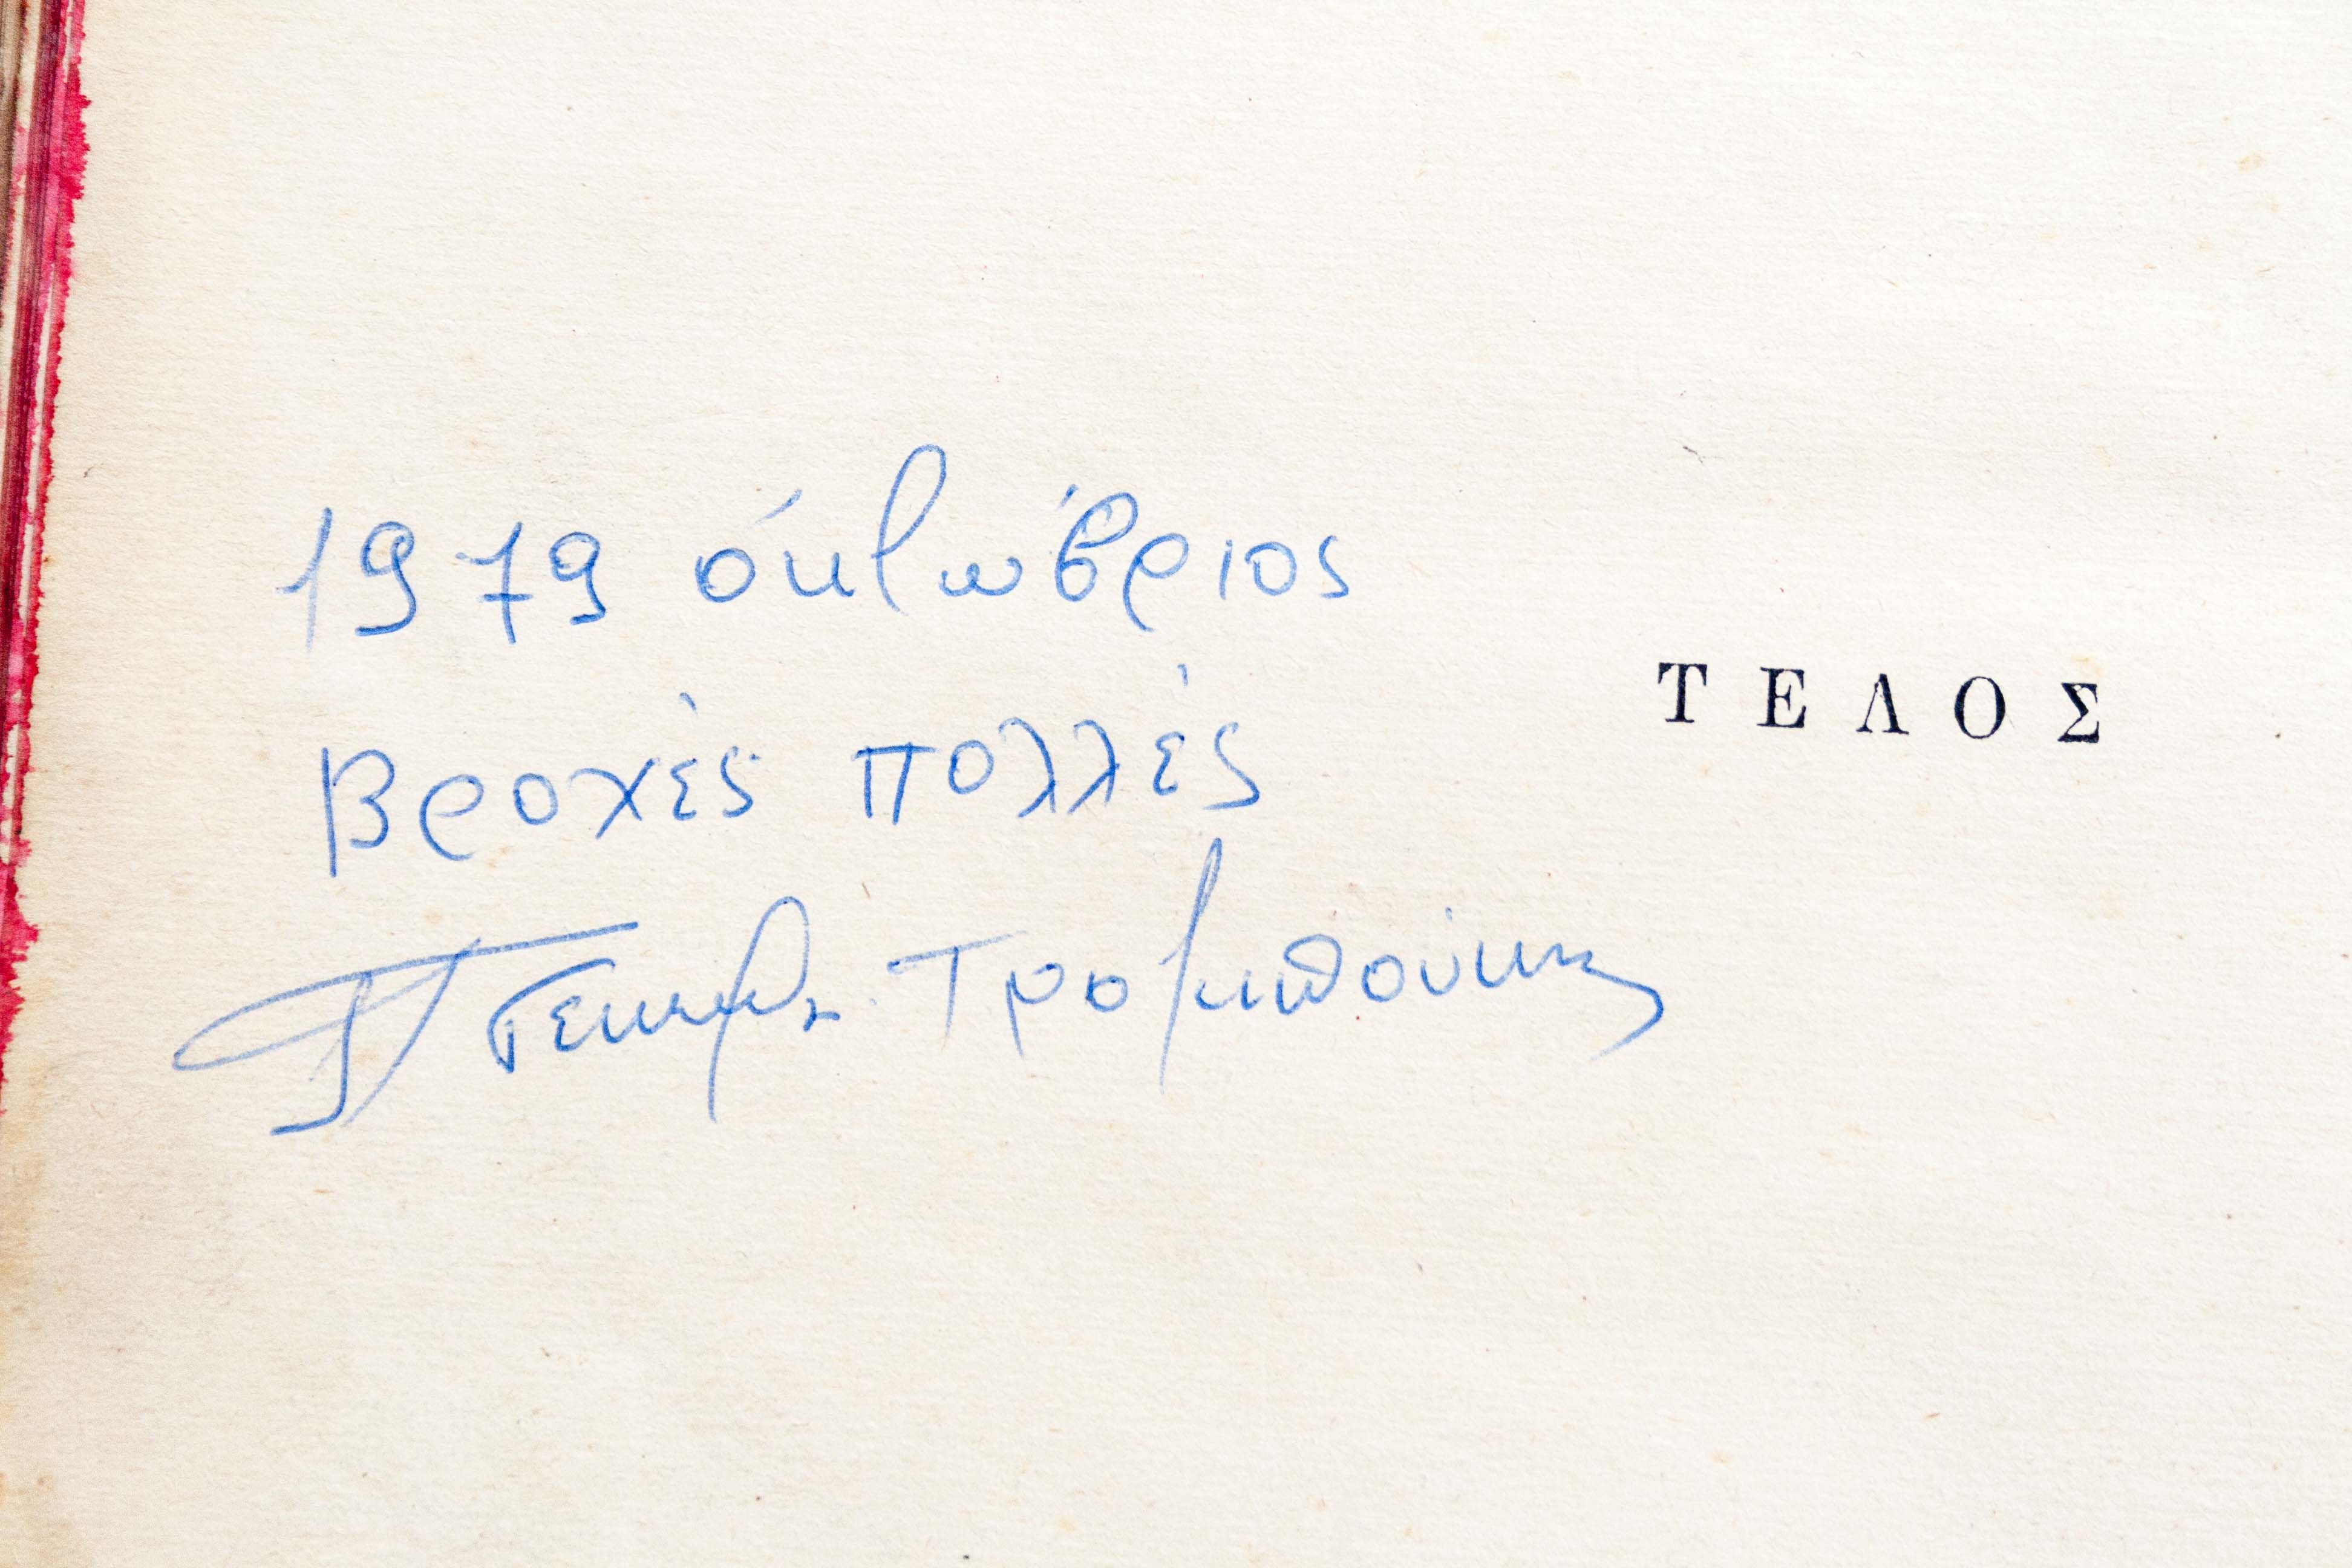 1979 ὀκτώβριος
Βροχές πολλές
Τρομπούκης
ΤΕΛΟΣ